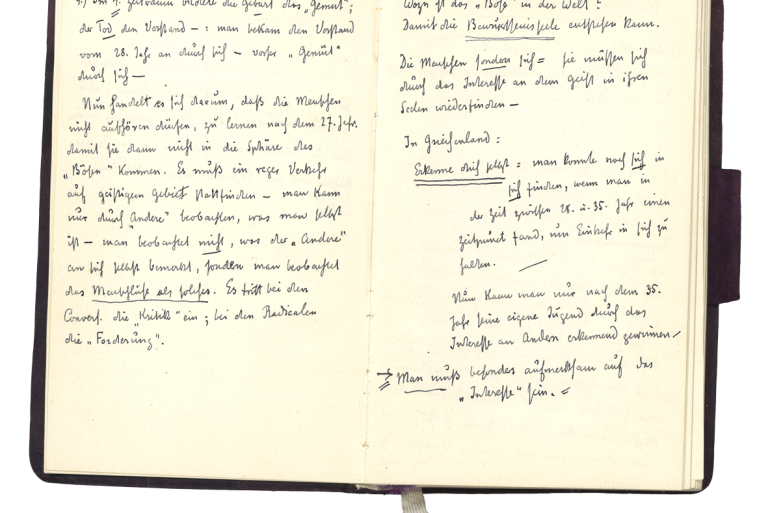 4.) Im 4. Zeitraum bildete die Geburt das „Gemüt“;
der Tod den Verstand – : man bekam den Verstand
vom 28. Jahr an durch sich – vorher „Gemüt“
durch sich —
Nun handelt es sich darum, daß die Menschen
nicht aufhören dürfen, zu lernen nach dem 27. Jahr.
damit sie dann nicht in die Sphäre des
„Bösen“ kommen. Es muß ein reger Verkehr
auf geistigem Gebiet stattfinden – man kann
nur durch „Andere“ beobachten, was man selbst
ist – man beobachtet nicht, was der „Andere“
an sich selbst bemerkt, sondern man beobachtet
das Menschliche als solches. Es tritt bei den
Conserv. die „Kritik“ ein; bei den Radicalen
die „Forderung“.
Wozu ist das „Böse“ in der Welt?
Damit die Bewußtseinsseele entstehen kann.
Die Menschen sondern sich = sie müssen sich
durch das Interesse an dem Geist in ihren
Seelen wiederfinden –
In Griechenland:
Erkenne dich selbst = man konnte noch sich in
sich finden, wenn man in
der Zeit zwischen 28. u. 35. Jahr einen
Zeitpunct fand, um Einkehr in sich zu
halten.
Nun kann man nur nach dem 35.
Jahr seine eigene Jugend durch das
Interesse an Andern erkennend gewinnen
→ Man muß besonders aufmerksam auf das
„Interesse“ sein. =